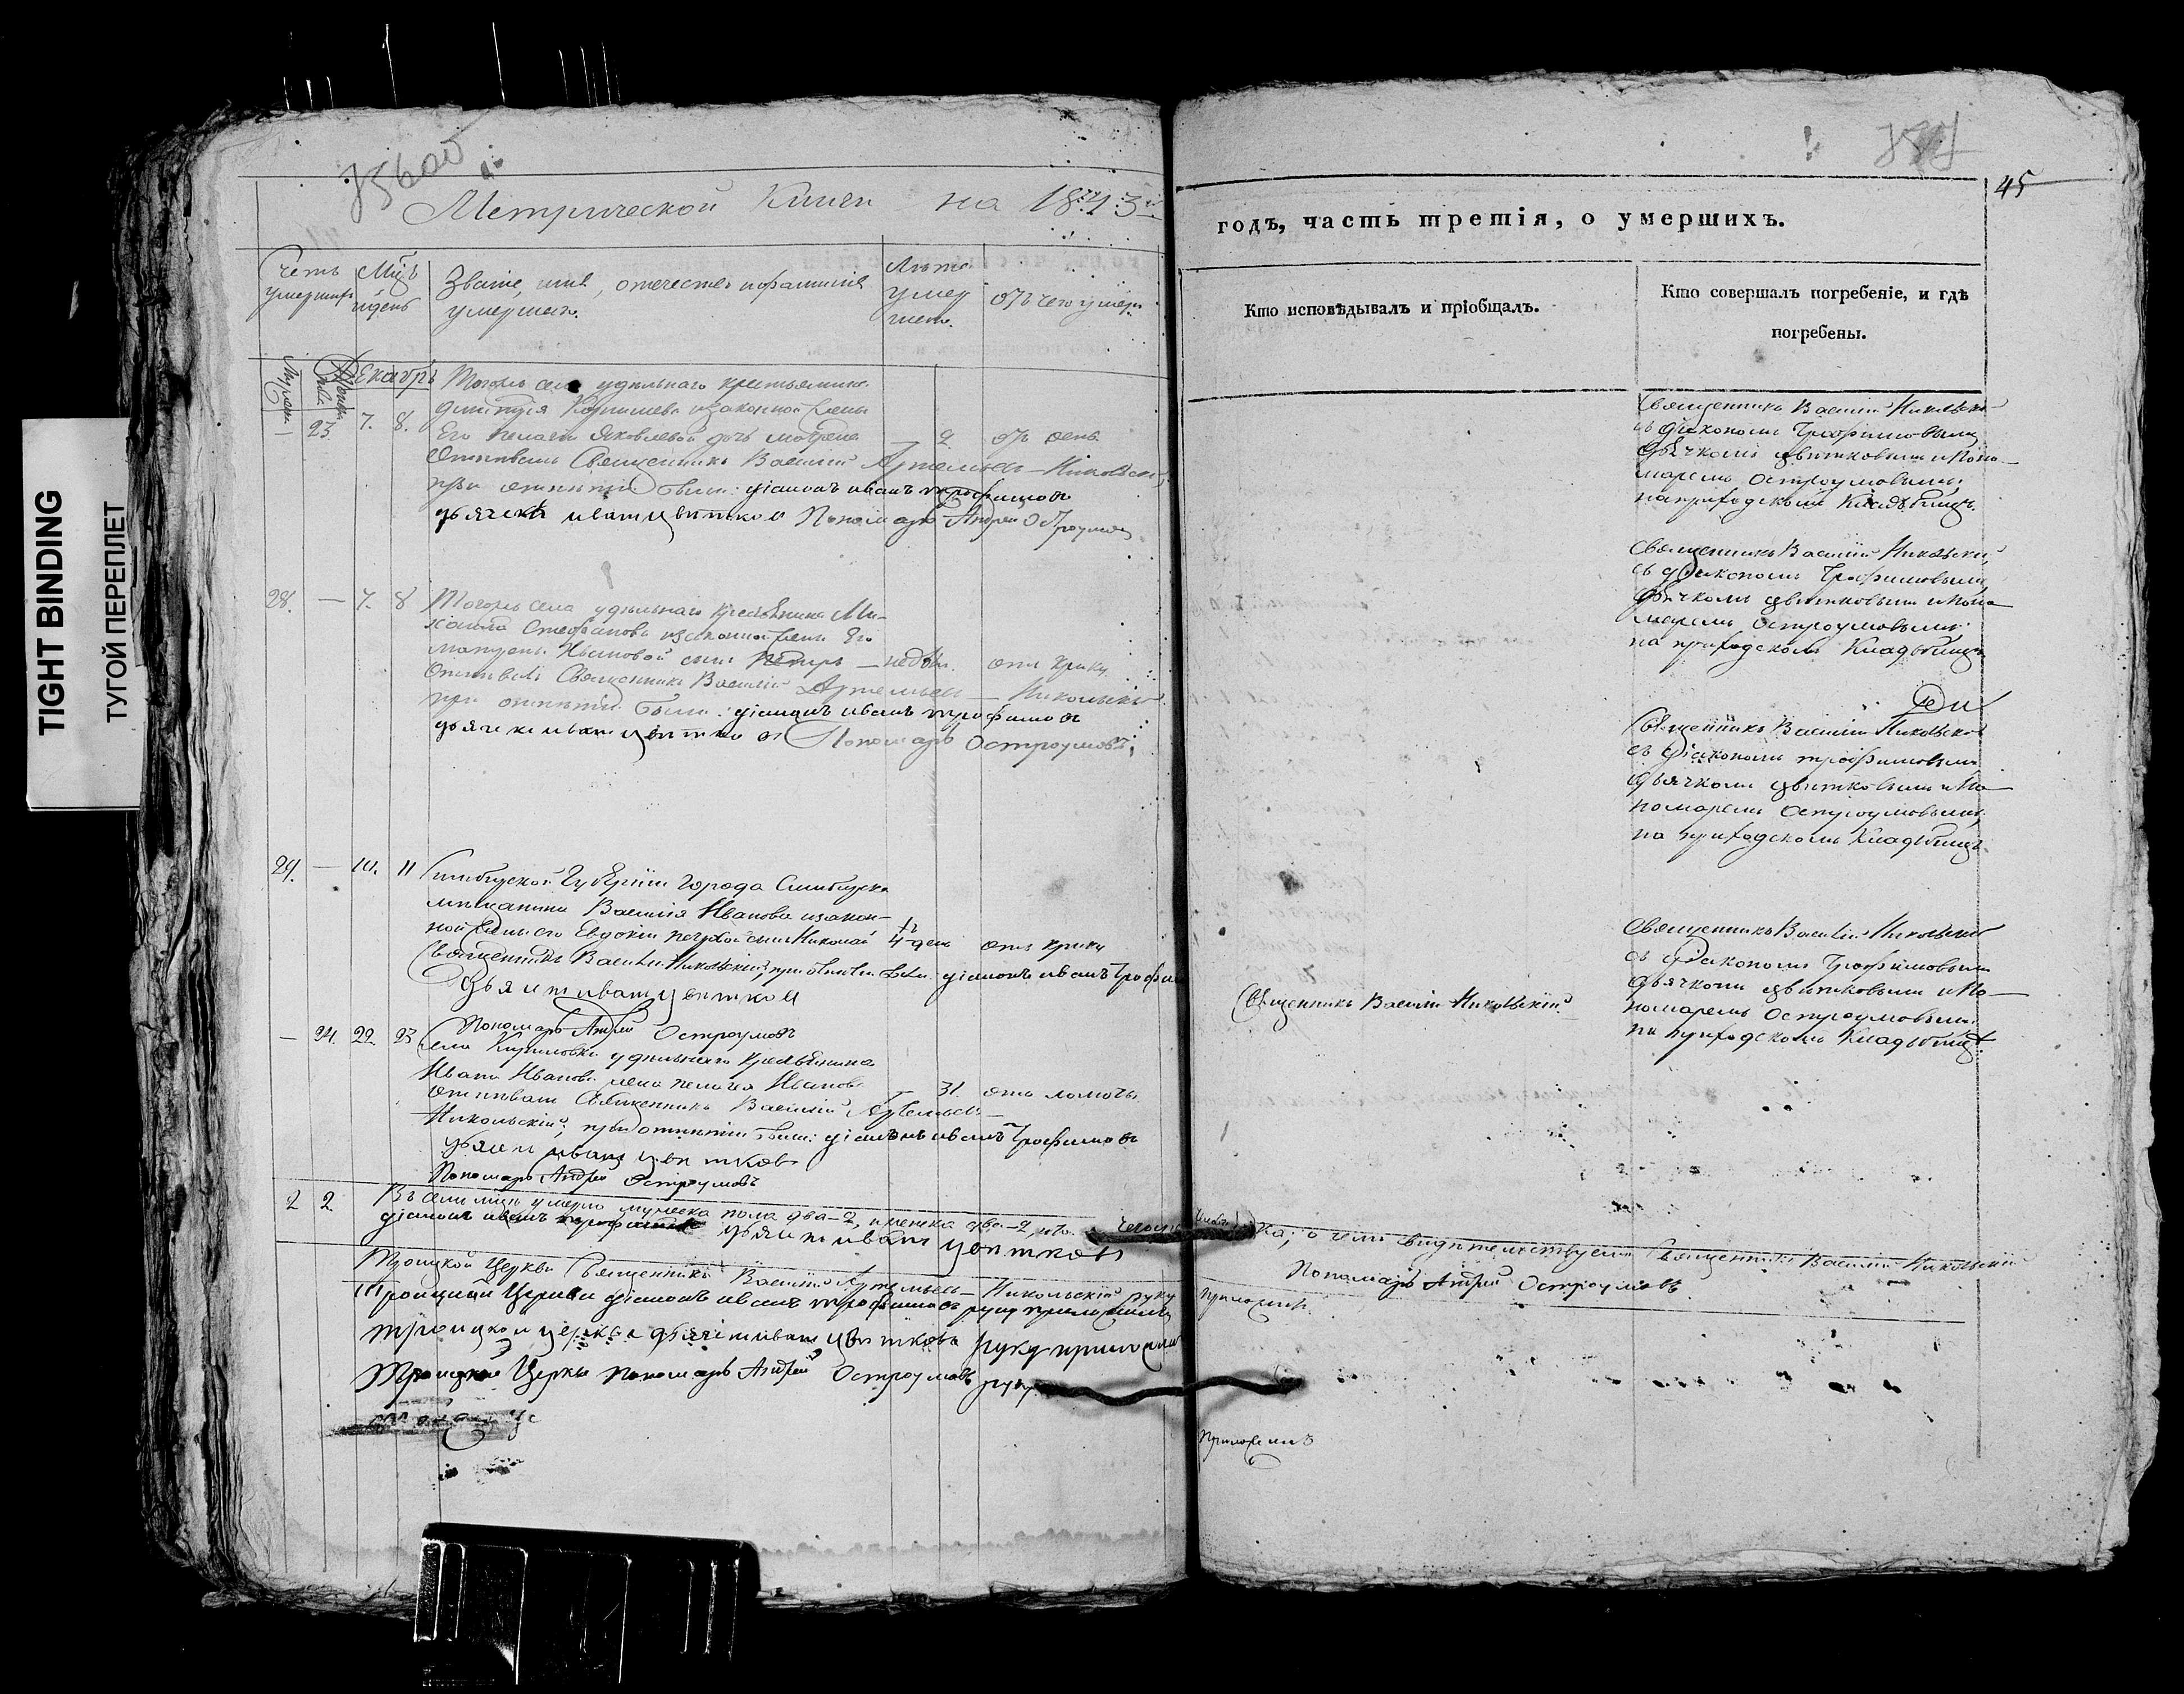 TIGHT BINDING
ТУГОЙ ПЕРЕПЛЕТ
356об
Метрической Книги на 1843й
годъ, часть третія, о умершихъ.
45
Счетъ умершихъ
Мцъ и день
Званіе, имя, отечество и фамилія умершаго.
Лѣта умершаго.
отъ чего умеръ.
Кто исповѣдывалъ и пріобщалъ.
Кто совершалъ погребеніе, и гдѣ
погребены.
Декабрь
— 23. 7. 8.
Тогожъ села удѣльнаго крестьянина
Дмитрія Корнилова и законной жены
Его Пелагеи Яковлевой дочь Матрена — 2
Отпѣвалъ Священникъ Василій Артемьевъ Никольскій,
при отпѣтіи были: діаконъ иванъ трофимовъ
дьячекъ иванъ цвѣтковъ Пономарь Андрей Остроумовъ
Священникъ Василій Никольскій
съ діакономъ Трофимовымъ
дьячкомъ цвѣтковымъ и Поно-
маремъ Остроумовымъ
на приходскомъ Кладбищѣ.
28. — 7. 8
Тогожъ села удѣльнаго крестьянина Ми-
хаила Стефанова и законной жены Его
Ивановой сынъ Петръ — отъ крику
Отпѣвалъ Священникъ Василій Артемьевъ Никольскій
при отпѣтіи были: діаконъ иванъ трофимовъ
дьячекъ иванъ цвѣтковъ Пономарь Остроумовъ
Священникъ Василій Никольскій
съ діакономъ Трофимовымъ
дьячкомъ цвѣтковымъ и Поно-
маремъ Остроумовымъ
на приходскомъ Кладбищѣ
29. — 10. 11
Симбирской Губерніи города Симбирска
мѣщанина Василія Иванова и закон-
ной жены его Евдокіи Петровой сынъ Николай 4 день отъ крику
Священникъ Василій Никольскій, при отпѣтіи были: діаконъ иванъ Трофимовъ
дьячекъ иванъ цвѣтковъ
Пономарь Андрей Остроумовъ
Священникъ Василій Никольскій
съ діакономъ трофимовымъ
дьячкомъ цвѣтковымъ и По-
номаремъ Остроумовымъ
на приходскомъ Кладбищѣ
— 24. 22. 23
села Кириловки удѣльнаго крестьянина
Ивана Иванова жена Пелагея Иванова — 31. отъ ломоты
Отпѣвалъ Священникъ Василій Артемьевъ
Никольскій; при отпѣтіи были: діаконъ иванъ Трофимовъ
дьячекъ иванъ цвѣтковъ
Пономарь Андрей Остроумовъ
Священникъ Василій Никольскій.
Священникъ Василій Никольскій
съ діакономъ Трофимовымъ
дьячкомъ цвѣтковымъ и По-
номаремъ Остроумовымъ
на приходскомъ Кладбищѣ
2 2.
Въ семъ мцѣ умерло мужеска пола два—2, и женска два—2, о чемъ свидѣтельствуемъ Священникъ Василій Никольскій
діаконъ иванъ трофимовъ дьячекъ иванъ цвѣтковъ Пономарь Андрей Остроумовъ
Троицкой Церкви Священникъ Василій Артемьевъ Никольскій руку приложилъ
Троицкой Церкви діаконъ иванъ трофимовъ руку приложилъ
троицкой церкви дьячекъ иванъ цвѣтковъ руку приложилъ
Троицкой Церкви Пономарь Андрей Остроумовъ руку
приложилъ